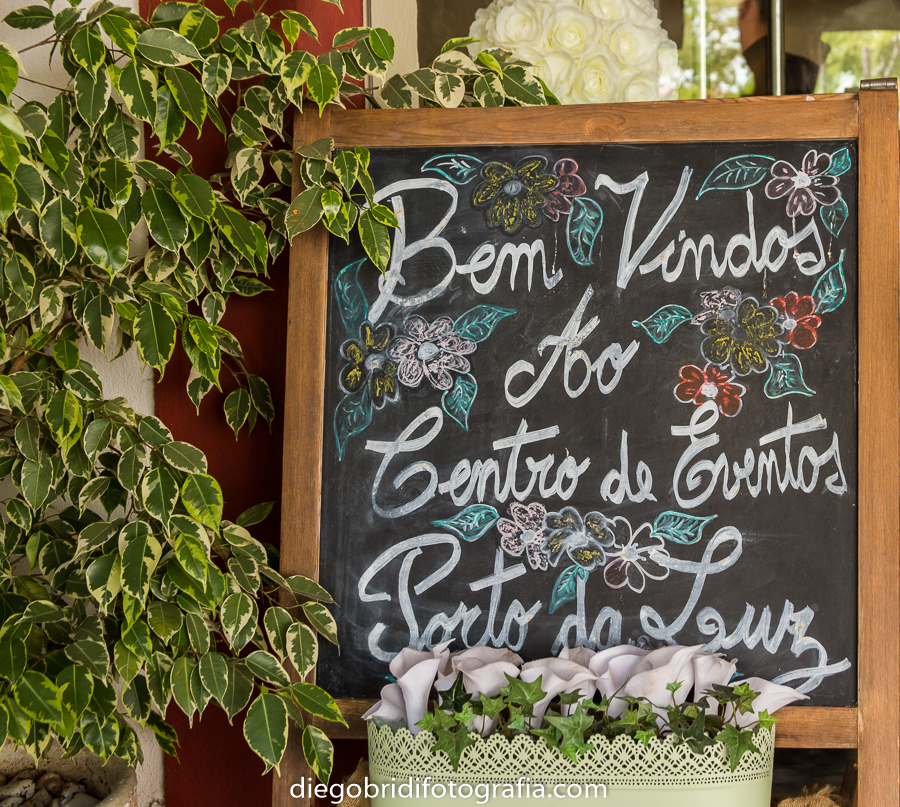 Bem Vindos
Ao
Centro de Eventos
Porto da Luz
diegobridifotografia.com